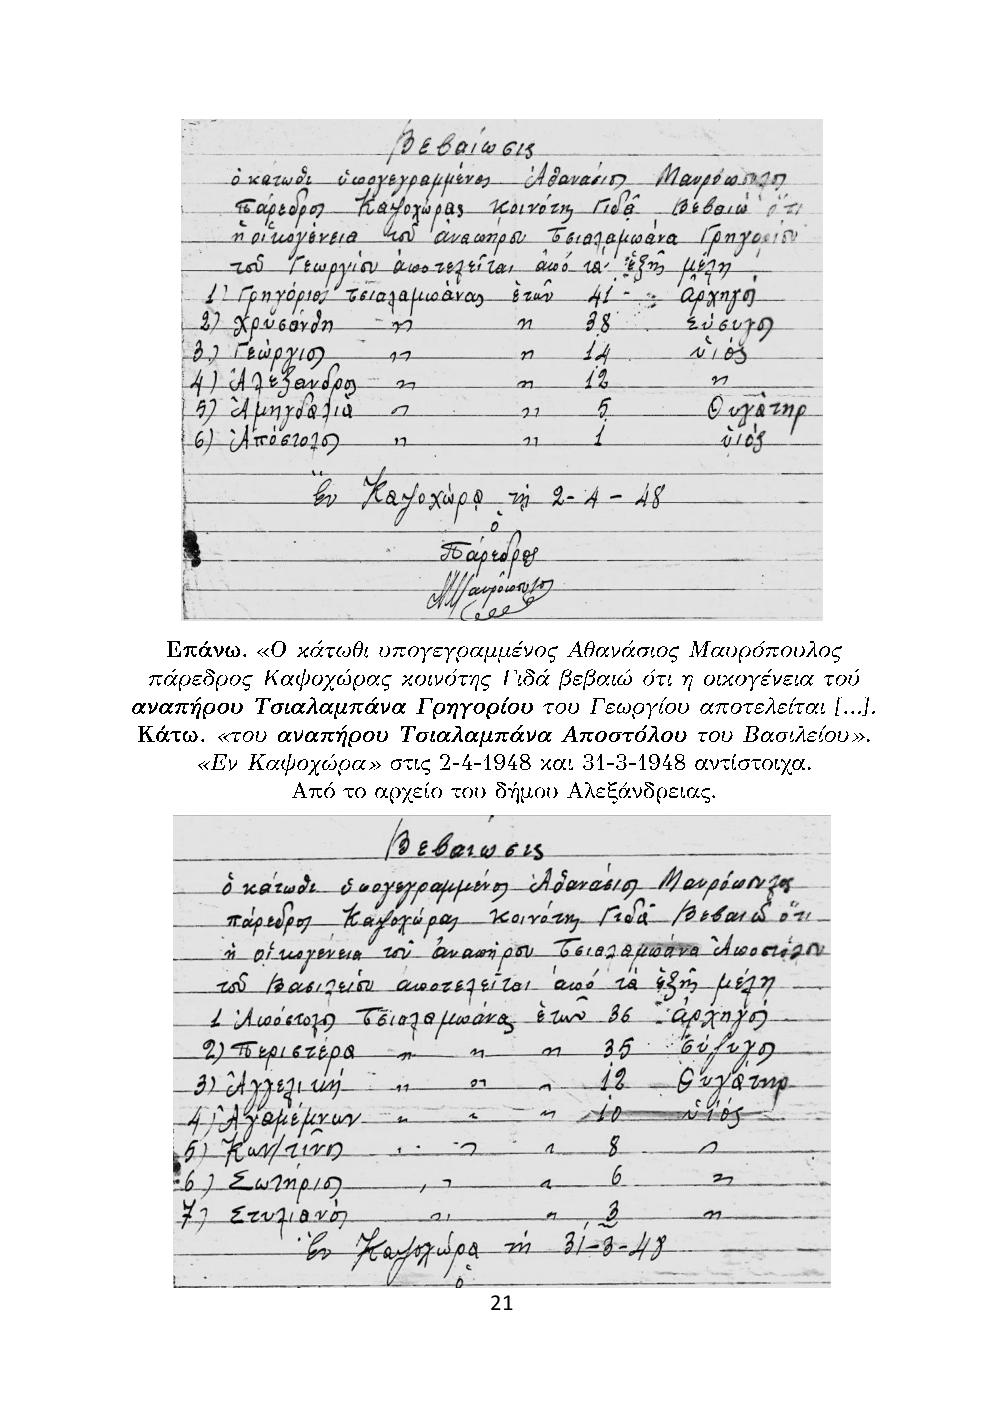 Βεβαίωσις
ὁ κάτωθι ὑπογεγραμμένος Ἀθανάσιος Μαυρόπουλος
πάρεδρος Καψοχώρας κοινότης Γιδᾶ Βεβαιῶ ὅτι
ἡ οἰκογένεια τοῦ ἀναπήρου Τσιαλαμπάνα Γρηγορίου
τοῦ Γεωργίου ἀποτελεῖται ἀπό τά ἑξῆς μέλη
1) Γρηγόριος Τσιαλαμπάνας ἐτῶν 41 - ἀρχηγός
2) Χρυσάνθη " " 38 σύζυγος
3) Γεώργιος " " 14 υἱός
4) Ἀλέξανδρος " " 12 "
5) Ἀμηγδαλιά " " 5 Θυγάτηρ
6) Ἀπόστολος " " 1 υἱός
Ἐν Καψοχώρᾳ τῇ 2-4-48
ὁ
Πάρεδρος
Μαυρόπουλος
Επάνω. «Ο κάτωθι υπογεγραμμένος Αθανάσιος Μαυρόπουλος
πάρεδρος Καψοχώρας κοινότης Γιδά βεβαιώ ότι η οικογένεια τού
αναπήρου Τσιαλαμπάνα Γρηγορίου του Γεωργίου αποτελείται [...].
Κάτω. «του αναπήρου Τσιαλαμπάνα Αποστόλου του Βασιλείου».
«Εν Καψοχώρα» στις 2-4-1948 και 31-3-1948 αντίστοιχα.
Από το αρχείο του δήμου Αλεξάνδρειας.
Βεβαιωσις
ὁ κάτωθι ὑπογεγραμμένος Ἀθανάσιος Μαυρόπουλος
πάρεδρος Καψοχώρας Κοινότης Γιδᾶ Βεβαιῶ ὅτι
ἡ οἰκογένεια τοῦ ἀναπήρου Τσιαλαμπάνα Ἀποστόλου
τοῦ Βασιλείου ἀποτελεῖται ἀπό τὰ ἑξῆς μέλη
1 Ἀπόστολος Τσιαλαμπάνας ἐτῶν 36 ἀρχηγός
2) Περιστέρα " " " 35 σύζυγος
3) Ἀγγελική " " " 12 Θυγάτηρ
4) Ἀγαμέμνων " " " 10 υἱός
5) Κων/τῖνος " " " 8 "
6) Σωτήριος " " 6 "
7) Στυλιανός " " 3 "
Ἐν Καψοχώρᾳ τῇ 31-3-48
ὁ
21